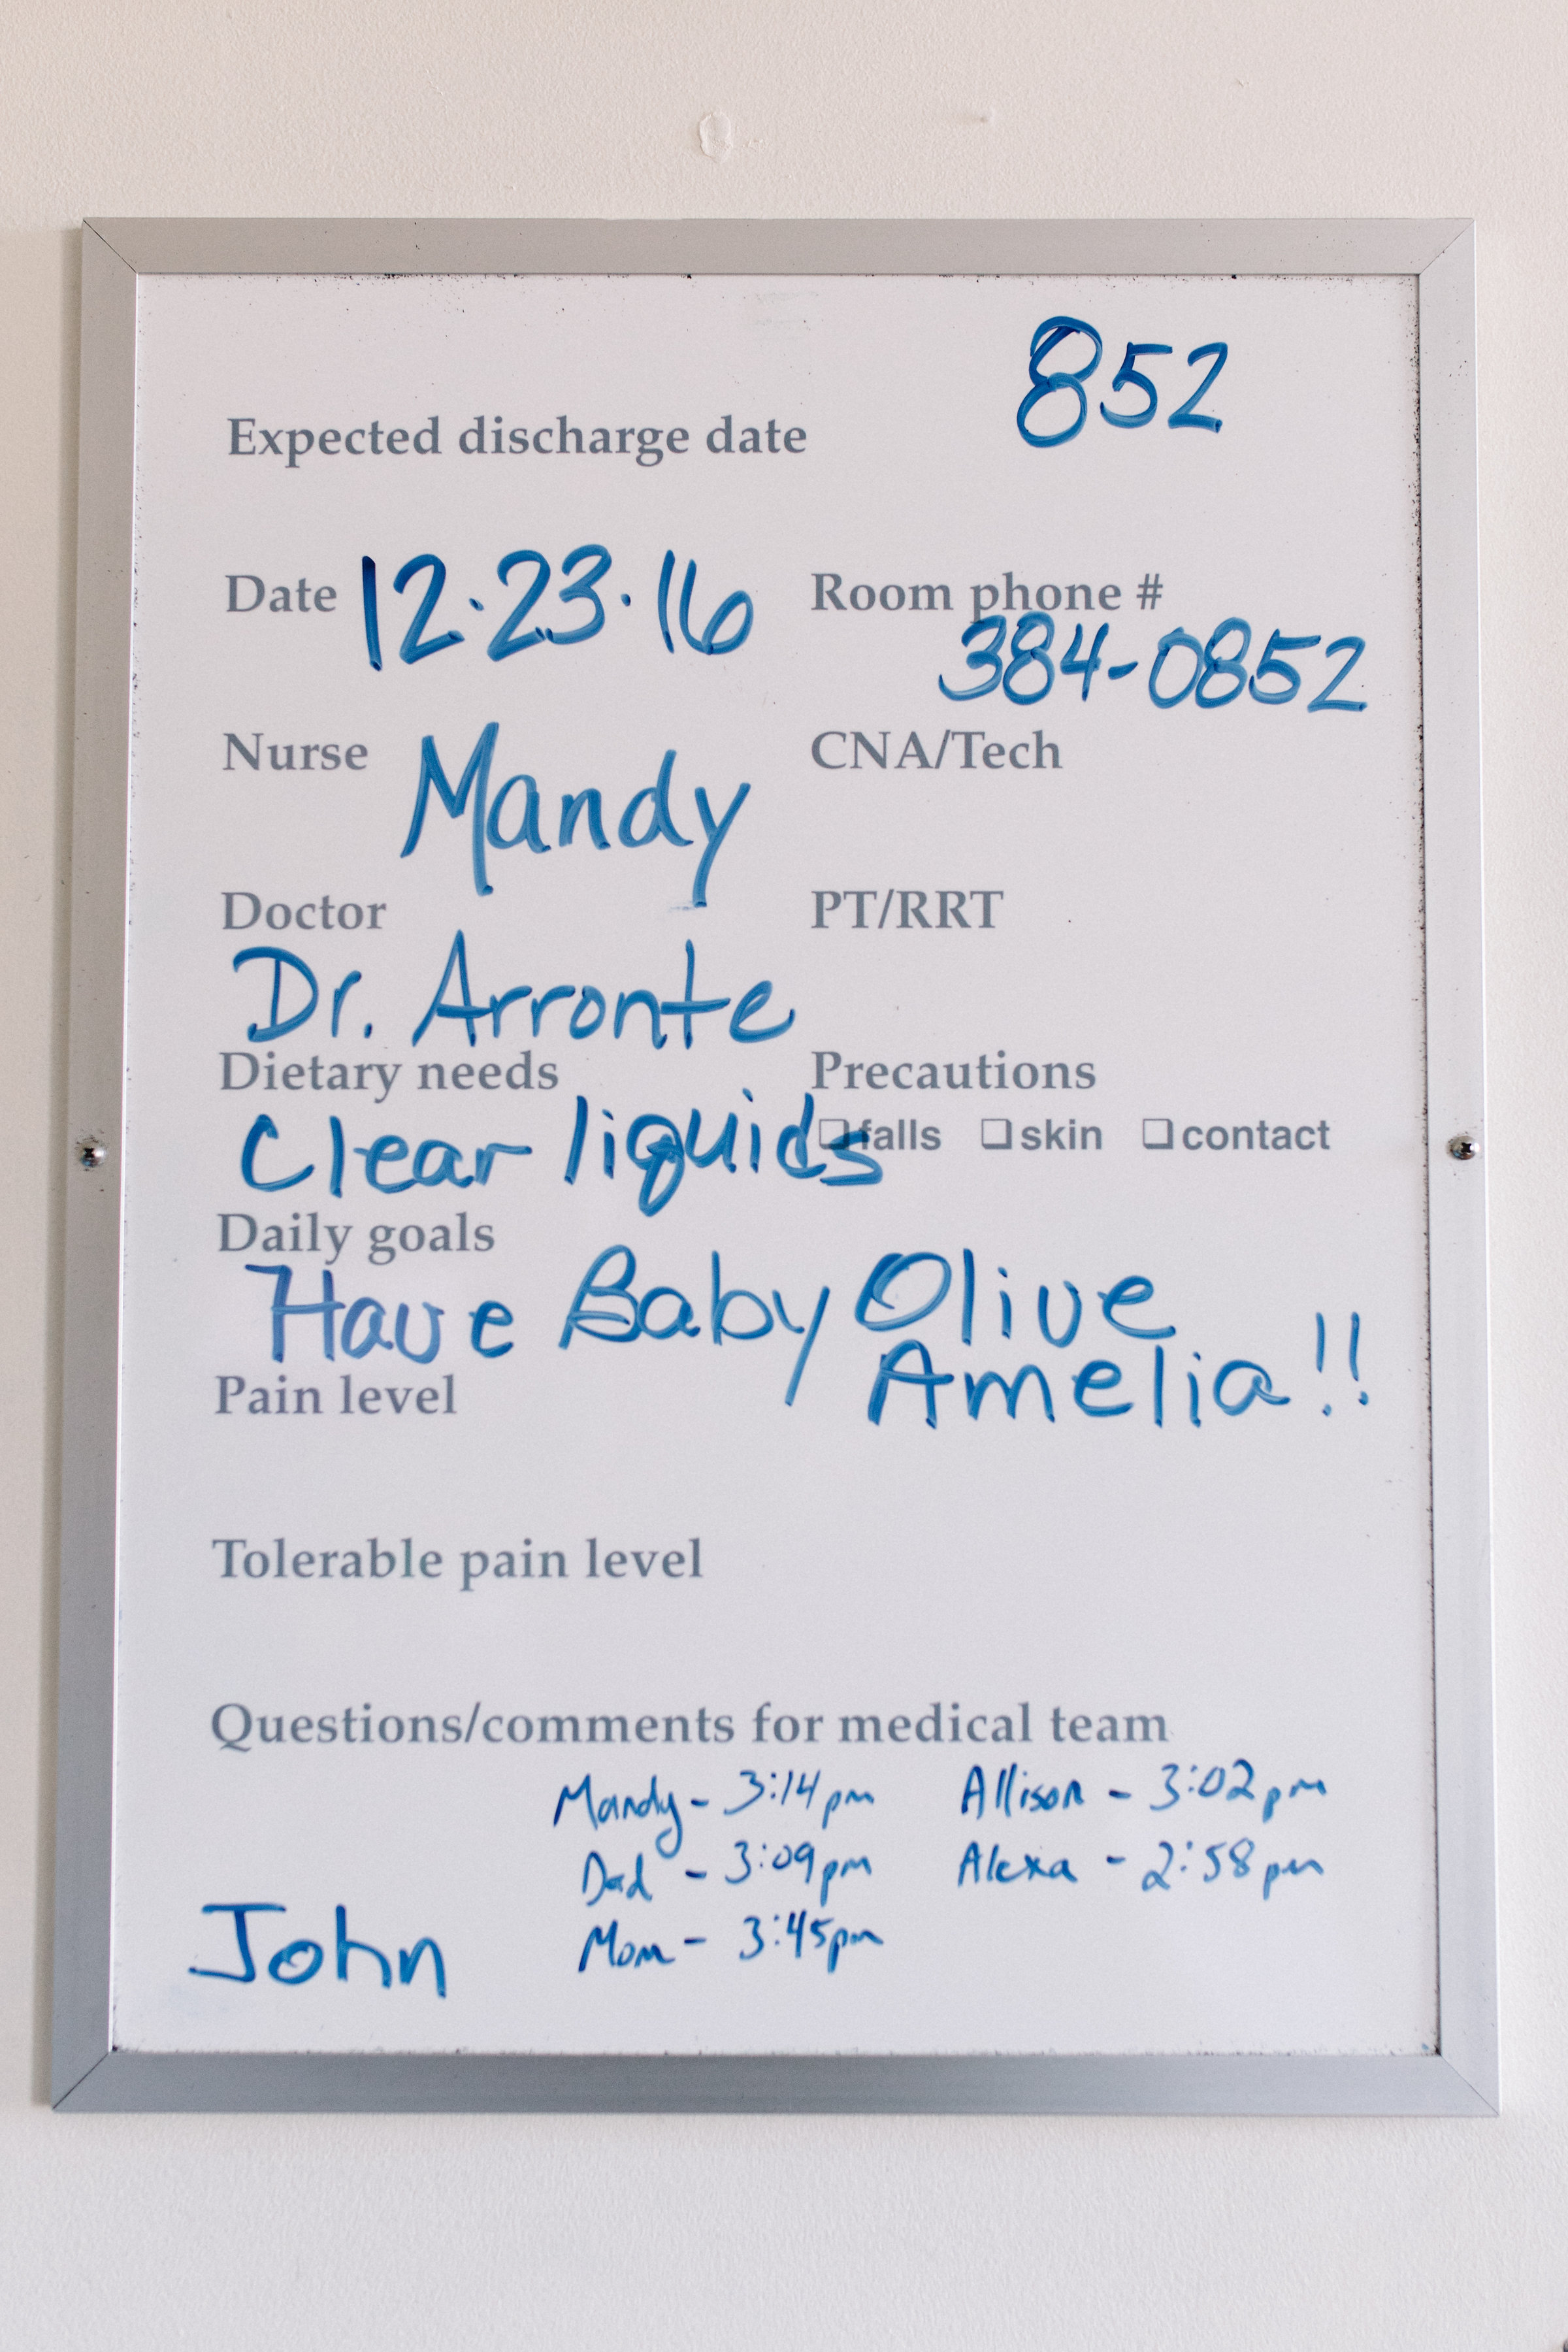 852
Expected discharge date
Date 12·23·16 Room phone #
384-0852
Nurse Mandy CNA/Tech
Doctor PT/RRT
Dr. Arronte
Dietary needs Precautions
Clear liquids ❑falls ❑skin ❑contact
Daily goals
Have Baby Olive
Amelia!!
Pain level
Tolerable pain level
Questions/comments for medical team
Mandy - 3:14pm Allison - 3:02pm
Dad - 3:09pm Alexa - 2:58pm
Mom - 3:45pm
John